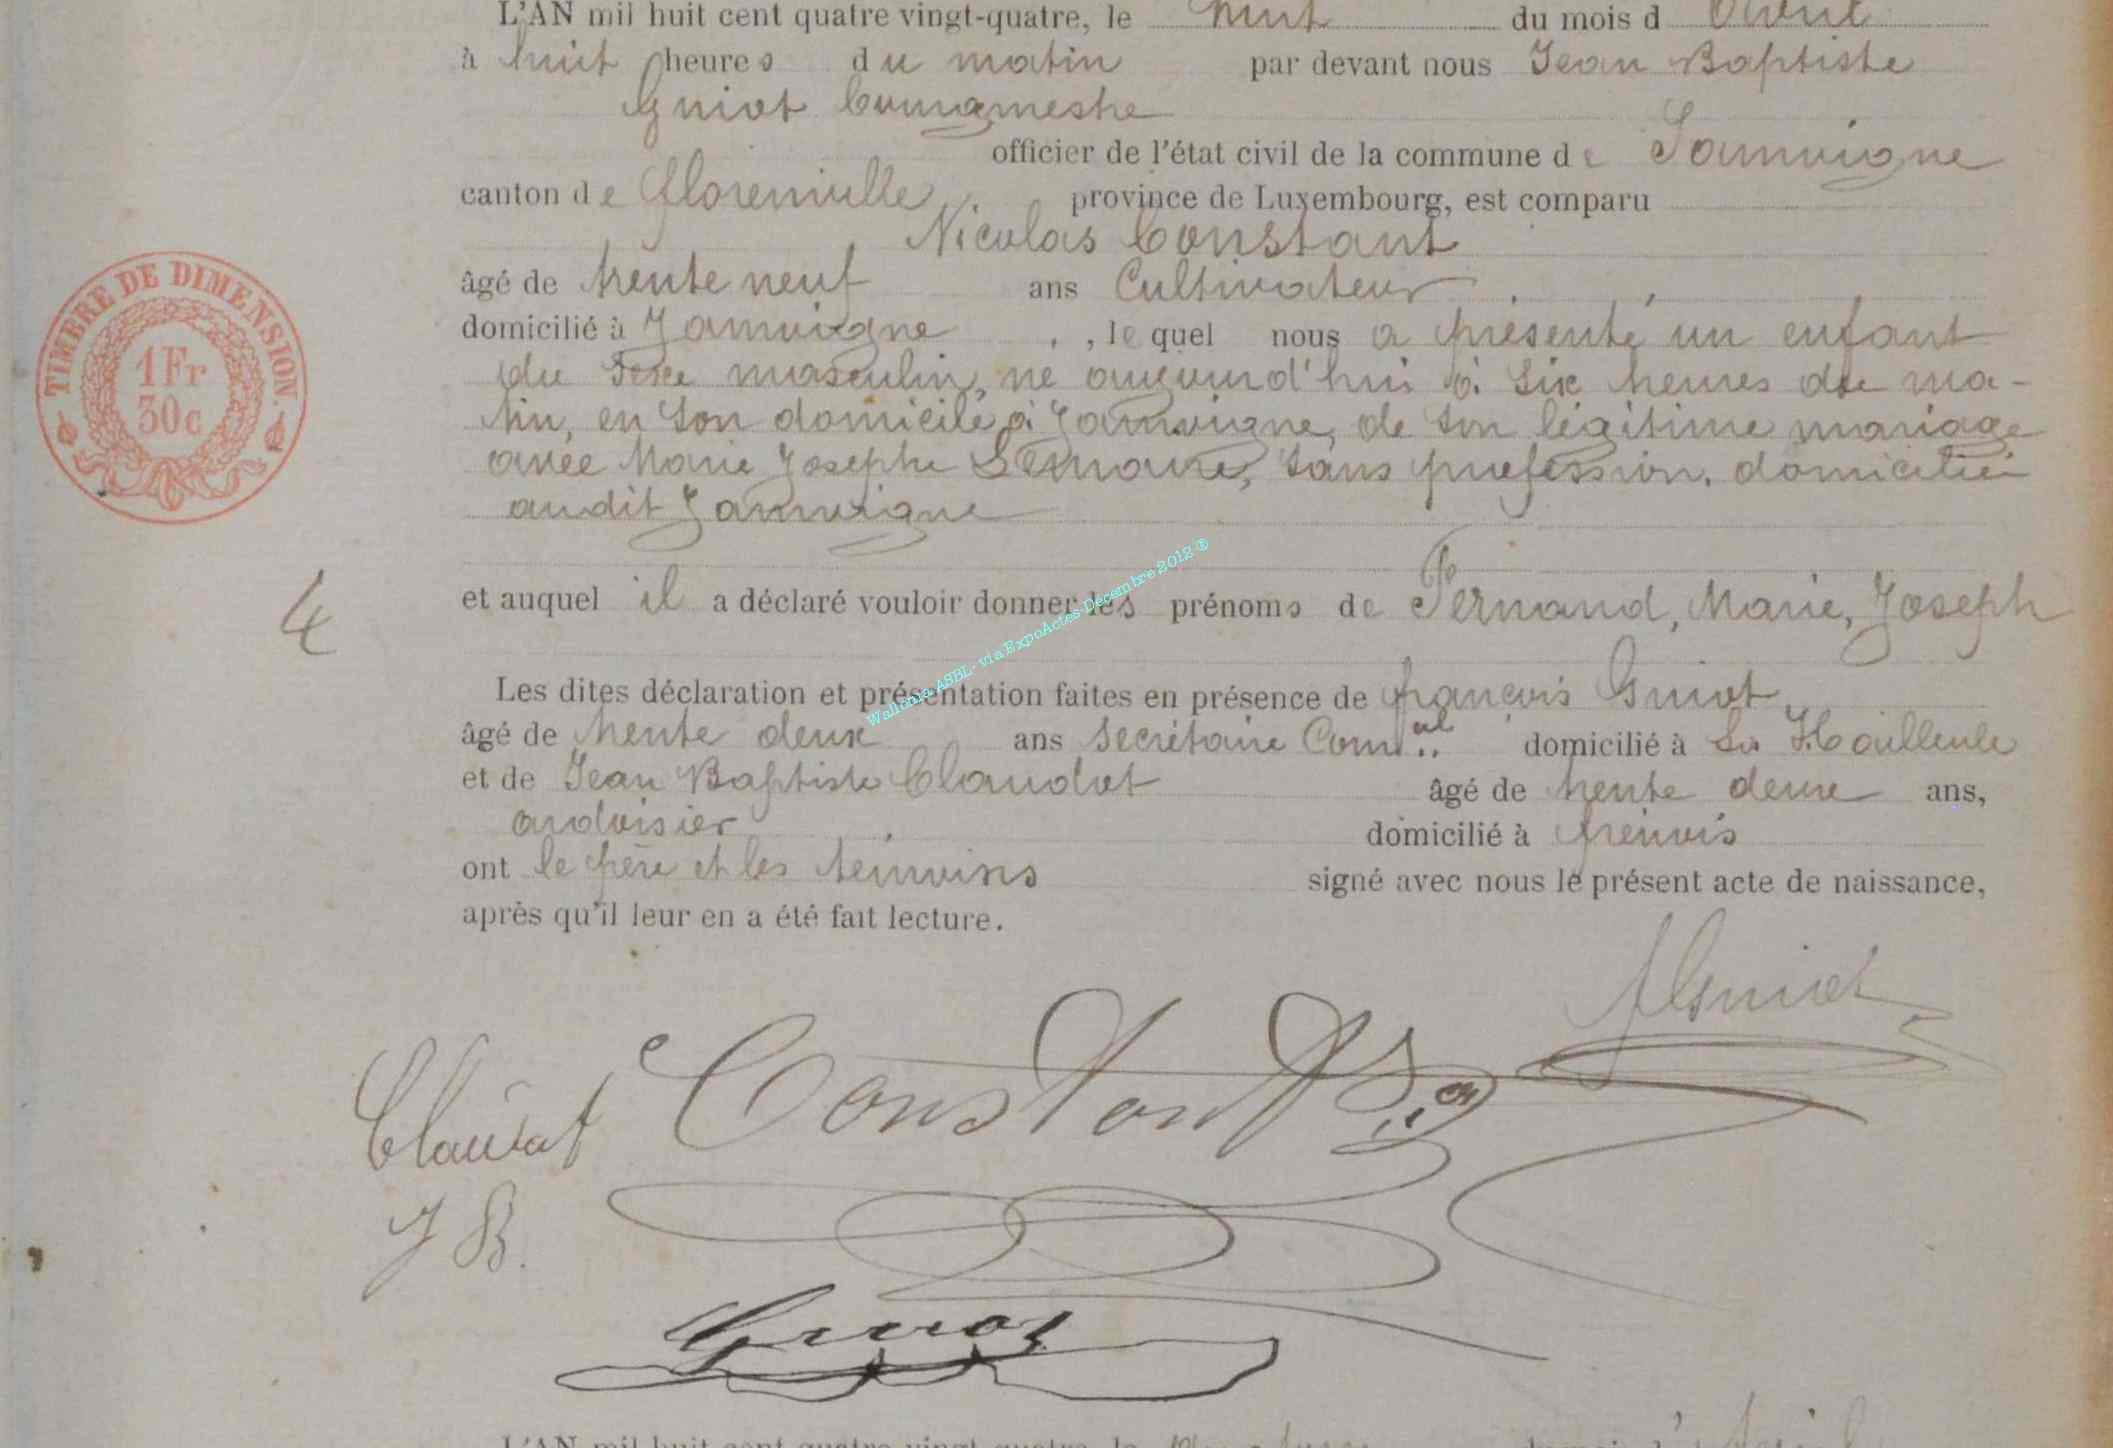 L'AN mil huit cent quatre vingt-quatre, le huit du mois d' Avril
à huit heures du matin par devant nous Jean Baptiste
Guiot bourgmestre
officier de l'état civil de la commune de Jamoigne
canton de florenville province de Luxembourg, est comparu
Nicolas Constant
âgé de trente neuf ans Cultivateur
domicilié à Jamoigne, lequel nous a présenté un enfant
du sexe masculin, né aujourd'hui à six heures du ma-
tin, en son domicile à Jamoigne, de son légitime mariage
avec Marie Josephe Lemoine, sans profession, domiciliée
audit Jamoigne
4
et auquel il a déclaré vouloir donner les prénoms de Fernand, Marie, Joseph
Les dites déclaration et présentation faites en présence de françois Guiot
âgé de trente deux ans secrétaire Com.al domicilié à La Hailleule
et de Jean Baptiste Claudot âgé de trente deux ans,
ardoisier domicilié à prénois
ont le père et les témoins signé avec nous le présent acte de naissance,
après qu'il leur en a été fait lecture.
TIMBRE DE DIMENSION.
1 Fr
30c
Wallonia ASBL - via ExpoActes Décembre 2012 ®
Guiot
Claudot Constant
J B.
Guiot
L'AN mil huit cent quatre vingt-quatre, le